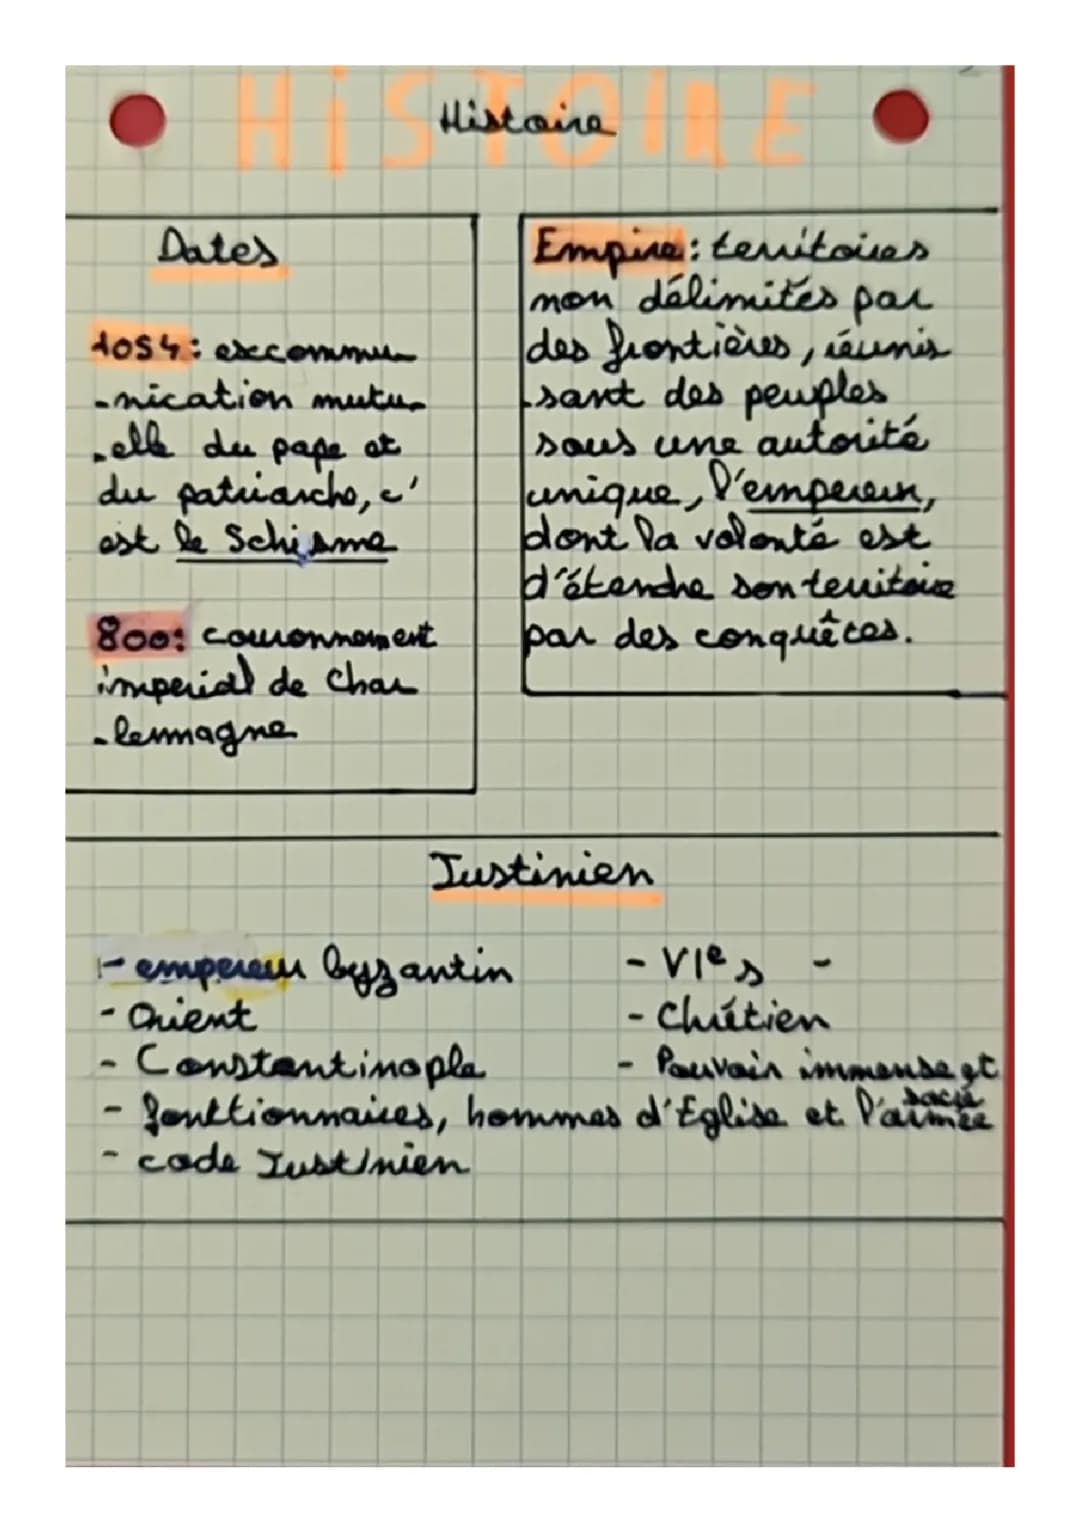 HiSTOIRE
Histoire
Dates
1054: excommu
-nication mutu-
-elle du pape et
du patriarche, c'
est le Schisme
800: couronnement
imperial de Char
-lemagne
Empire: territoires
non délimités par
des frontières, réunis
-sant des peuples
sous une autorité
unique, l'empereur,
dont la volonté est
d'étendre son territoire
par des conquêtes.
Justinien
- empereur byzantin
- Orient
- Constantinople
- VIe s -
- Chrétien
- Pouvoir immense et
sacré
- fonctionnaires, hommes d'Eglise et l'armée
- code Justinien